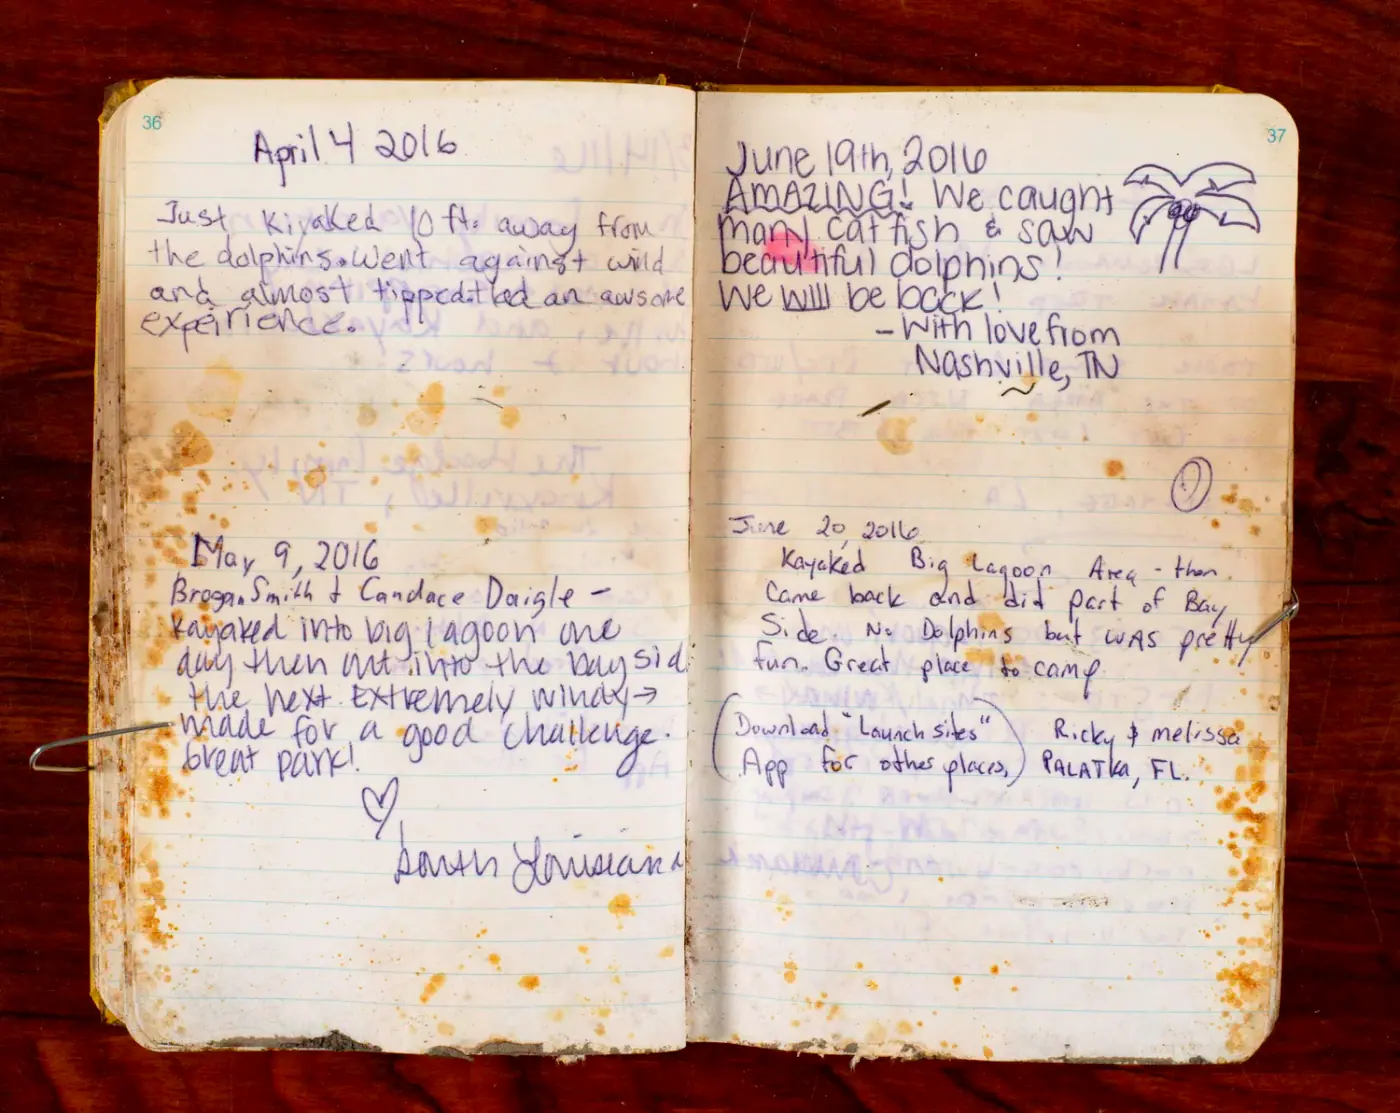 36
April 4 2016
Just Kiyaked 10 ft. away from
the dolphins. Went against wind
and almost tipped. Had an awsome
expeirience.
May 9, 2016
Brogan Smith & Candace Daigle –
Kayaked into big lagoon one
day then out into the bay sid
the next. Extremely windy →
made for a good challenge.
Great park!
South Louisiana
37
June 19th, 2016
AMAZING! We caught
many catfish & saw
beautiful dolphins!
We will be back!
– With love from
Nashville, TN
June 20, 2016
Kayaked Big Lagoon Area - then
Came back and did part of Bay
Side. No Dolphins but was pretty
fun. Great place to camp
(Download "Launch sites"
App for other places.)
Ricky & melissa
PALATKA, FL.